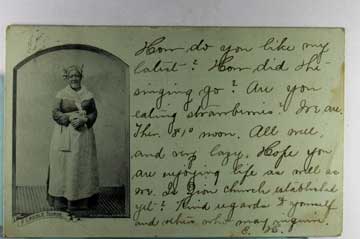 How do you like my
latest? How did the
singing go? Are you
eating strawberries? We are.
The $10 won. All well,
and very lazy. Hope you
are enjoying life as well as
we. Is your church established
yet? Kind regards to yourself
and others who may inquire.
E. H.